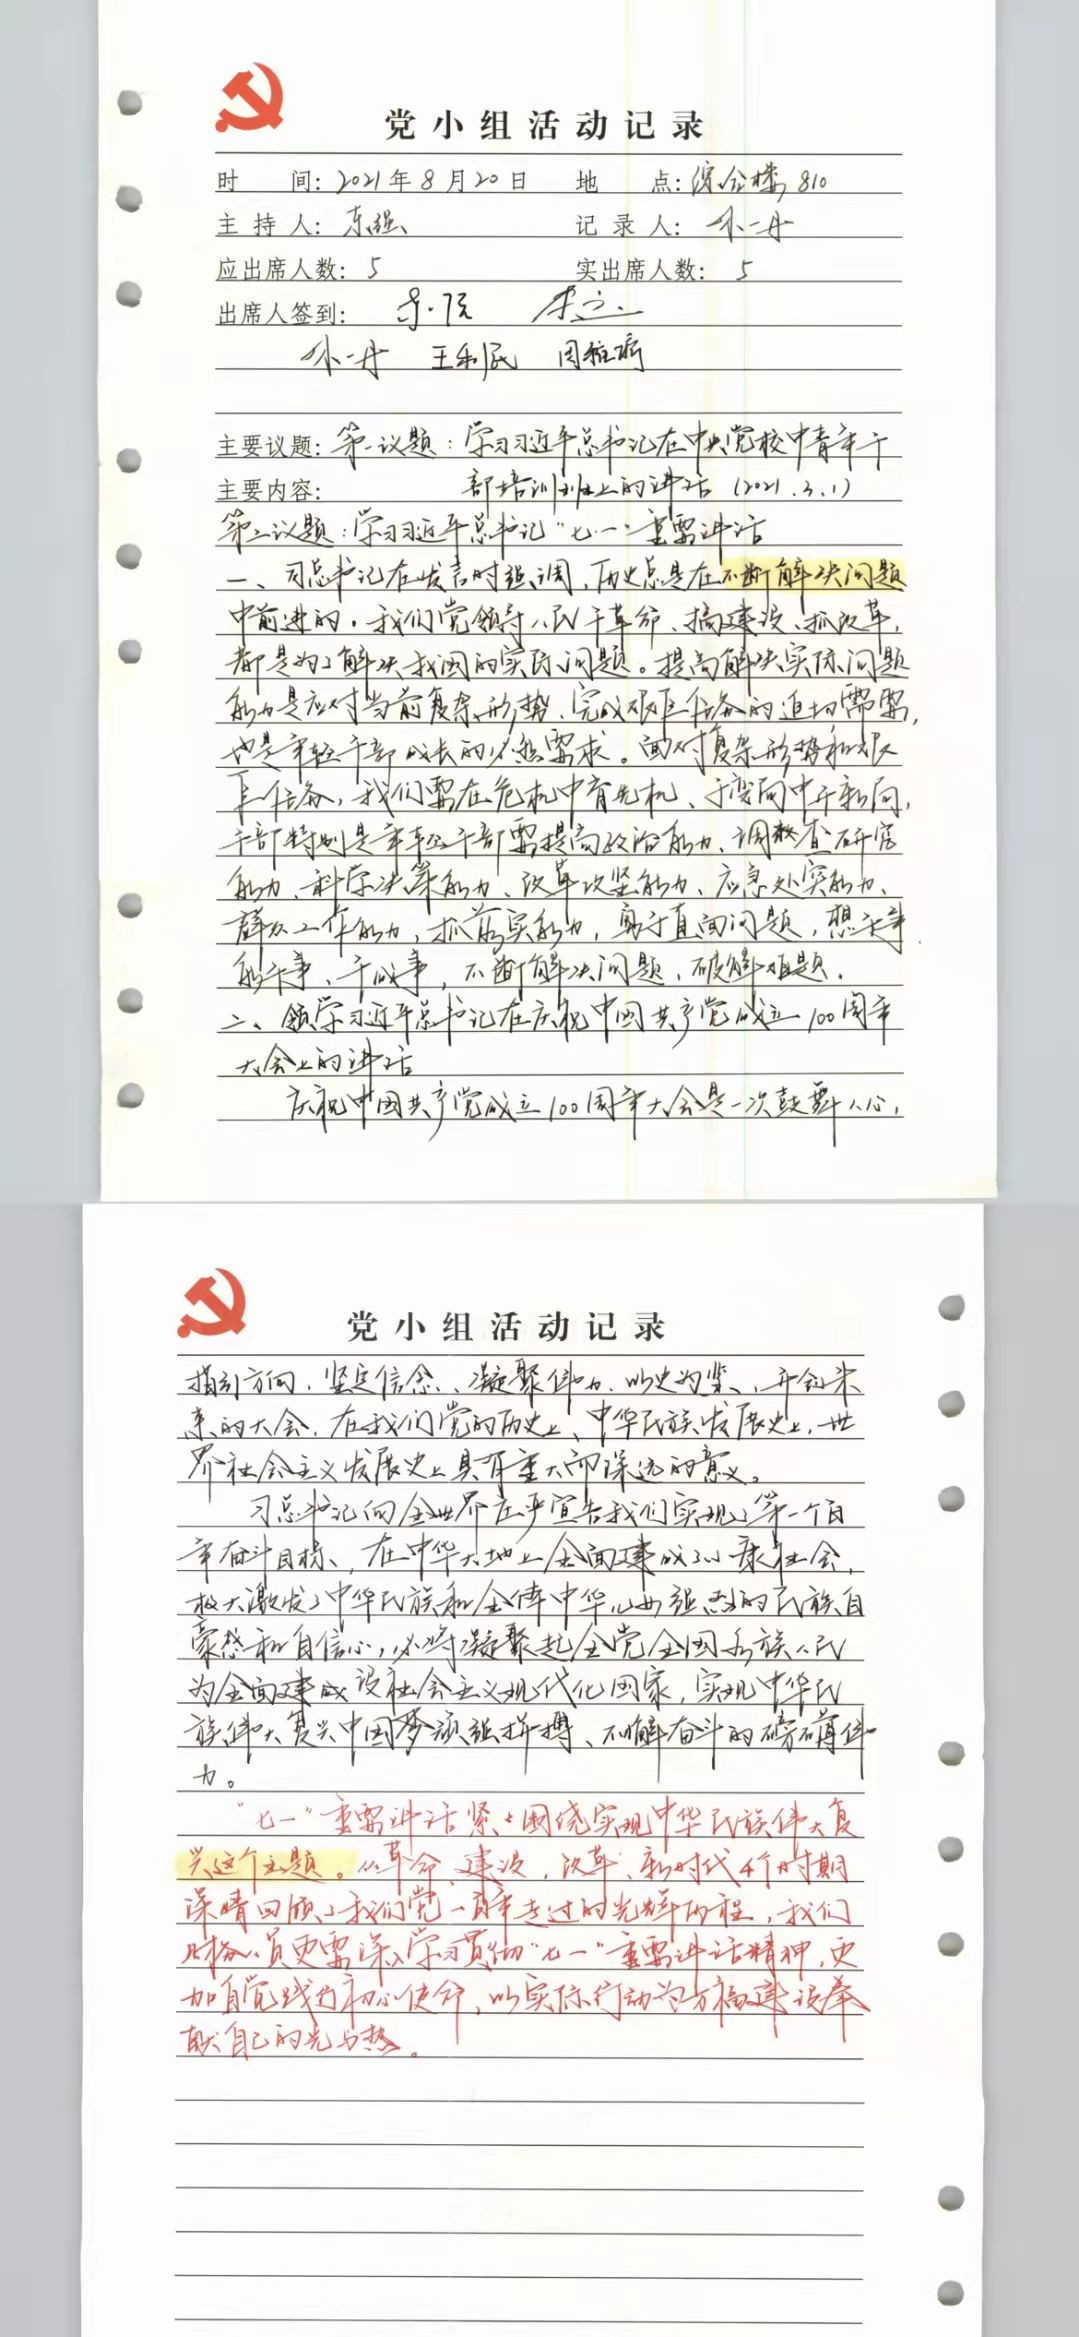 党小组活动记录
时 间: 2021年8月20日 地 点: 综合楼810
主持人: 记录人: 一丹
应出席人数: 5 实出席人数: 5
出席人签到:
一丹 王利民 周
主要议题: 第一议题:学习习近平总书记在中央党校中青年干
主要内容: 部培训班上的讲话 (2021.3.1)
第二议题:学习习近平总书记“七一”重要讲话
一、习总书记在发言时强调,历史总是在不断解决问题
中前进的。我们党领导人民干革命、搞建设、抓改革,
都是为了解决我国的实际问题。提高解决实际问题
能力是应对当前复杂形势、完成艰巨任务的迫切需要,
也是年轻干部成长的必然要求。面对复杂形势和艰
巨任务,我们要在危机中育先机、于变局中开新局,
干部特别是年轻干部要提高政治能力、调查研究
能力、科学决策能力、改革攻坚能力、应急处突能力、
群众工作能力,抓落实能力,勇于直面问题,想干事
能干事、干成事,不断解决问题、破解难题.
二、领学习近平总书记在庆祝中国共产党成立100周年
大会上的讲话
庆祝中国共产党成立100周年大会是一次鼓舞人心,
党小组活动记录
指引方向、坚定信念、凝聚伟力、以史为鉴、开创未
来的大会,在我们党的历史上、中华民族发展史上,世
界社会主义发展史上具有重大而深远的意义。
习总书记向全世界庄严宣告我们实现了第一个百
年奋斗目标,在中华大地上全面建成了小康社会,
极大激发了中华民族和全体中华儿女强烈的民族自
豪感和自信心,必将凝聚起全党全国各族人民
为全面建成设社会主义现代化国家,实现中华民
族伟大复兴中国梦顽强拼搏、不懈奋斗的磅礴伟
力。
“七一”重要讲话紧紧围绕实现中华民族伟大复
兴这个主题。从革命、建设,改革、新时代4个时期
深情回顾了我们党一百年走过的光辉历程,我们
财务人员更要深入学习贯彻“七一”重要讲话精神,更
加自觉践行初心使命,以实际行动为万福建设奉
献自己的光与热。